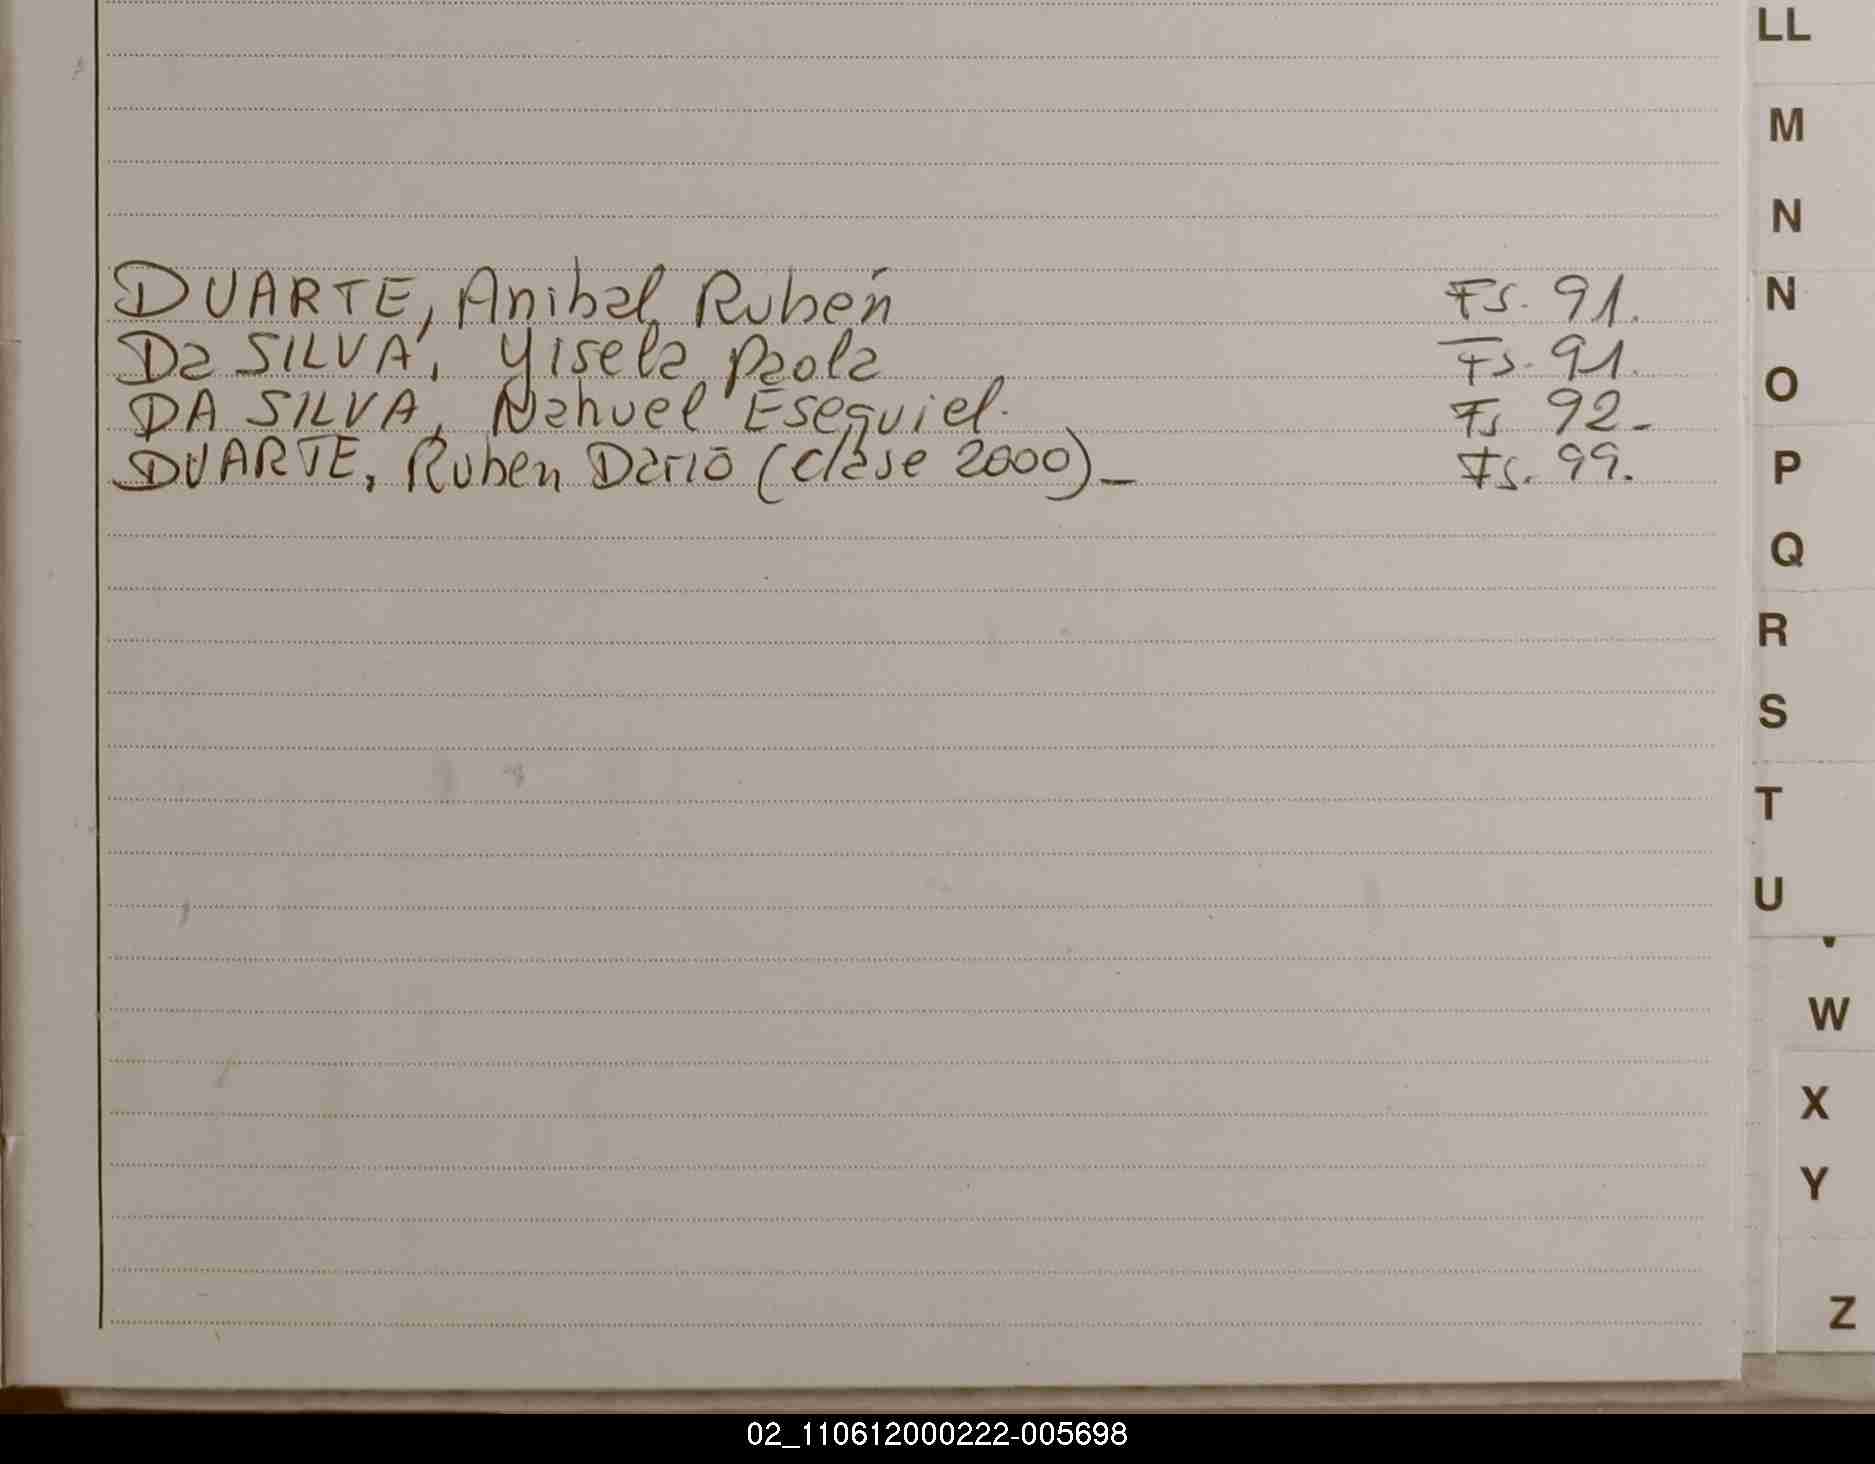 DUARTE, Anibal Rubén Fs. 91.
Da SILVA, Yisela Paola Fs. 91.
DA SILVA, Nahuel Esequiel. Fs 92.-
DUARTE, Ruben Dario (clase 2000)_ Fs. 99.
LL
M
N
N
O
P
Q
R
S
T
U
W
X
Y
Z
02_110612000222-005698